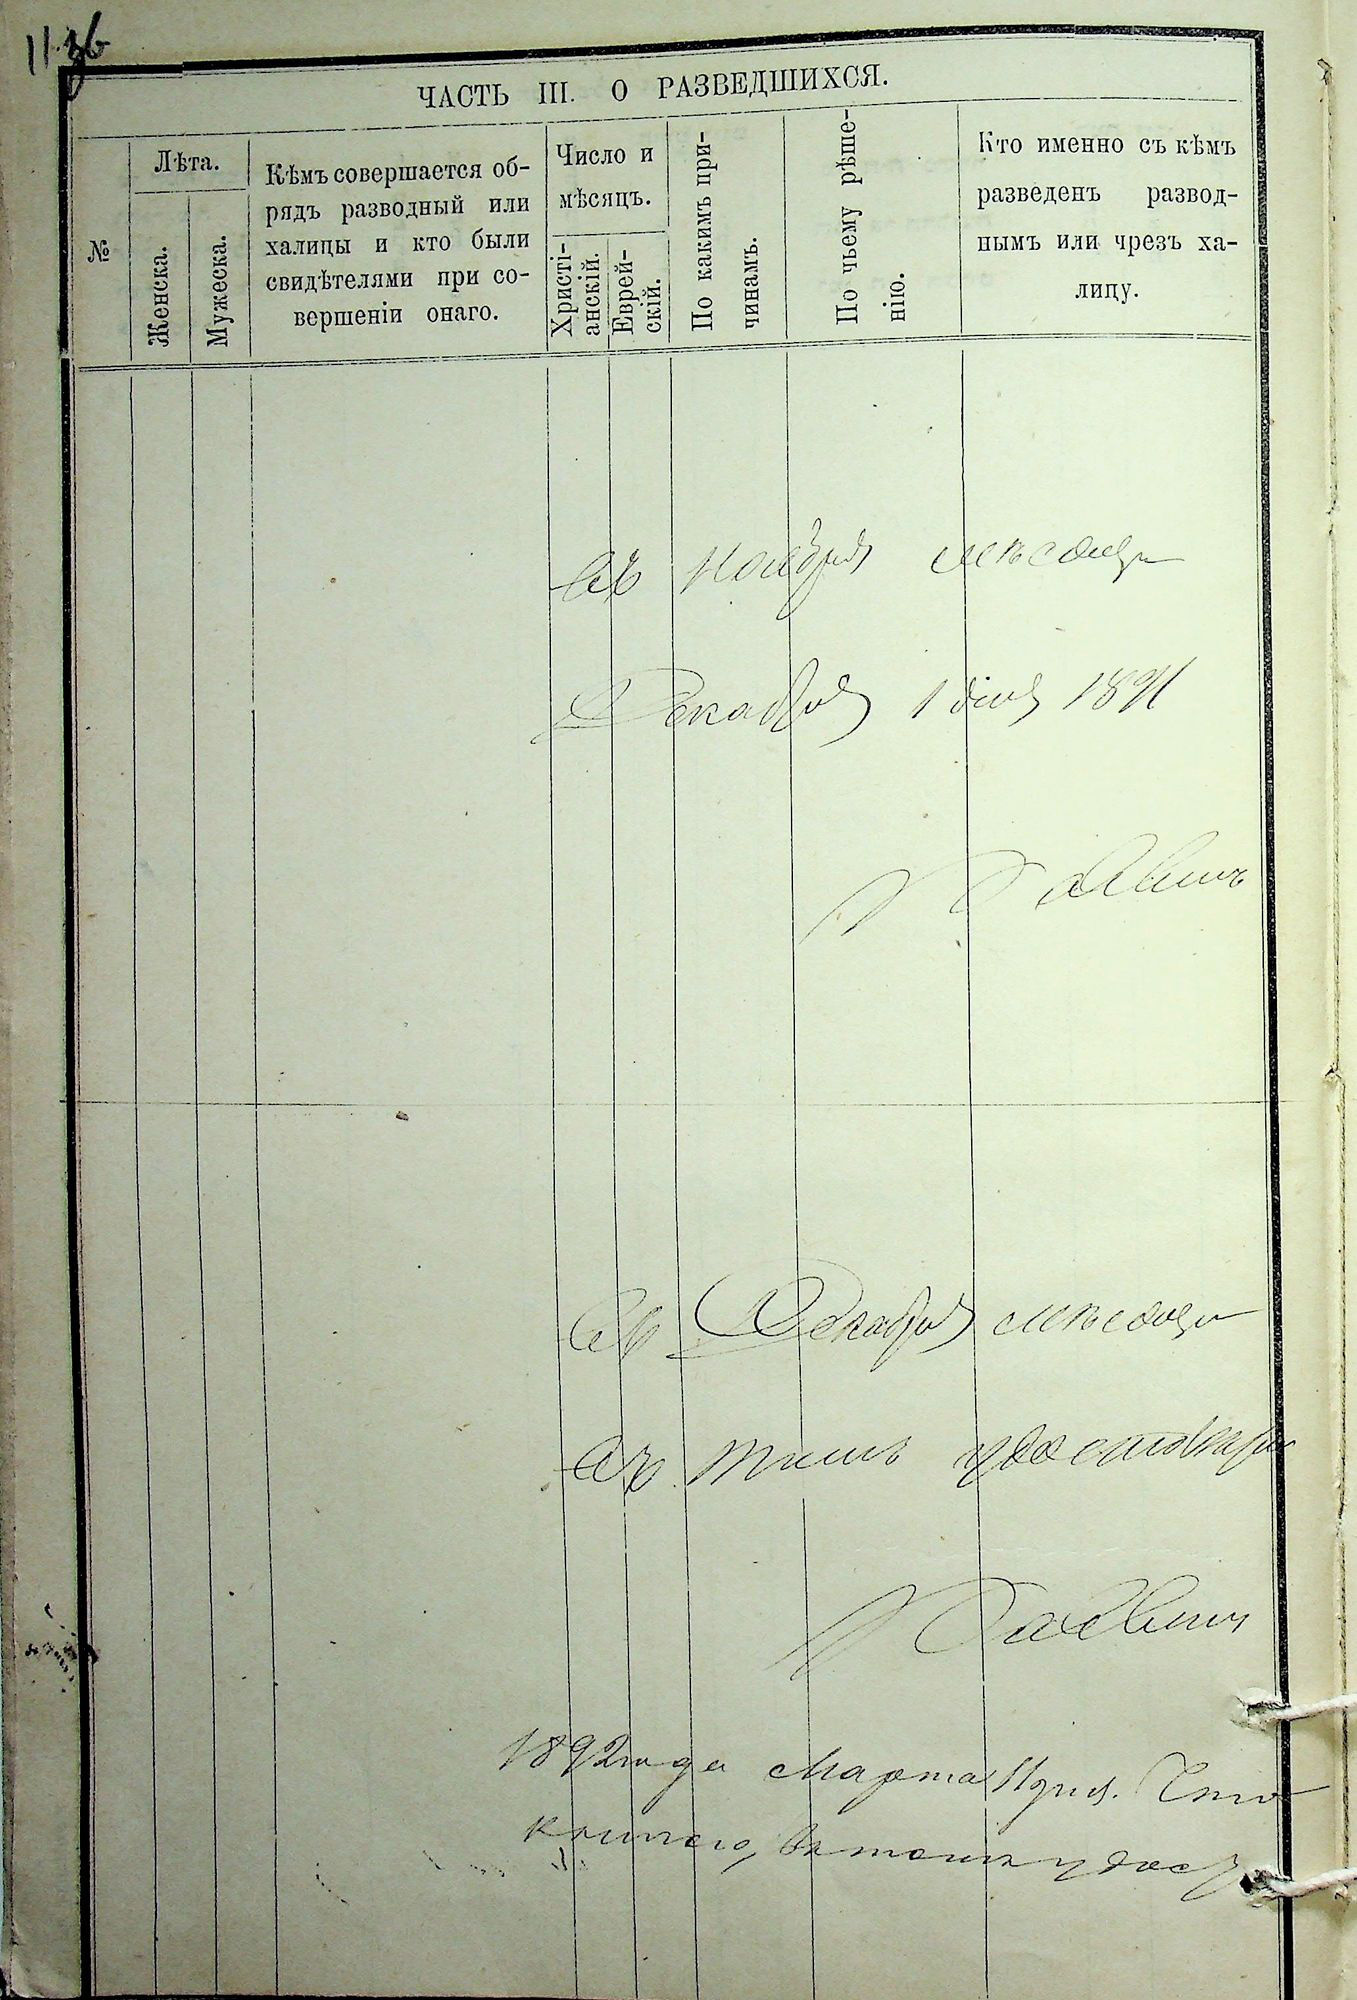 11 зв
ЧАСТЬ III. О РАЗВЕДШИХСЯ.
№
Лѣта.
Женска.
Мужеска.
Кѣмъ совершается об-
рядъ разводный или
халицы и кто были
свидѣтелями при со-
вершеніи онаго.
Число и
мѣсяцъ.
Христі-
анскій.
Еврей-
скій.
По какимъ при-
чинамъ.
По чьему рѣше-
нію.
Кто именно съ кѣмъ
разведенъ развод-
нымъ или чрезъ ха-
лицу.
Въ Ноябрѣ мѣсяцѣ
Декабря 1 дня 1891
Въ Декабрѣ мѣсяцѣ
въ томъ удостовѣр
1892 года Марта 11 дня.
въ томъ удос